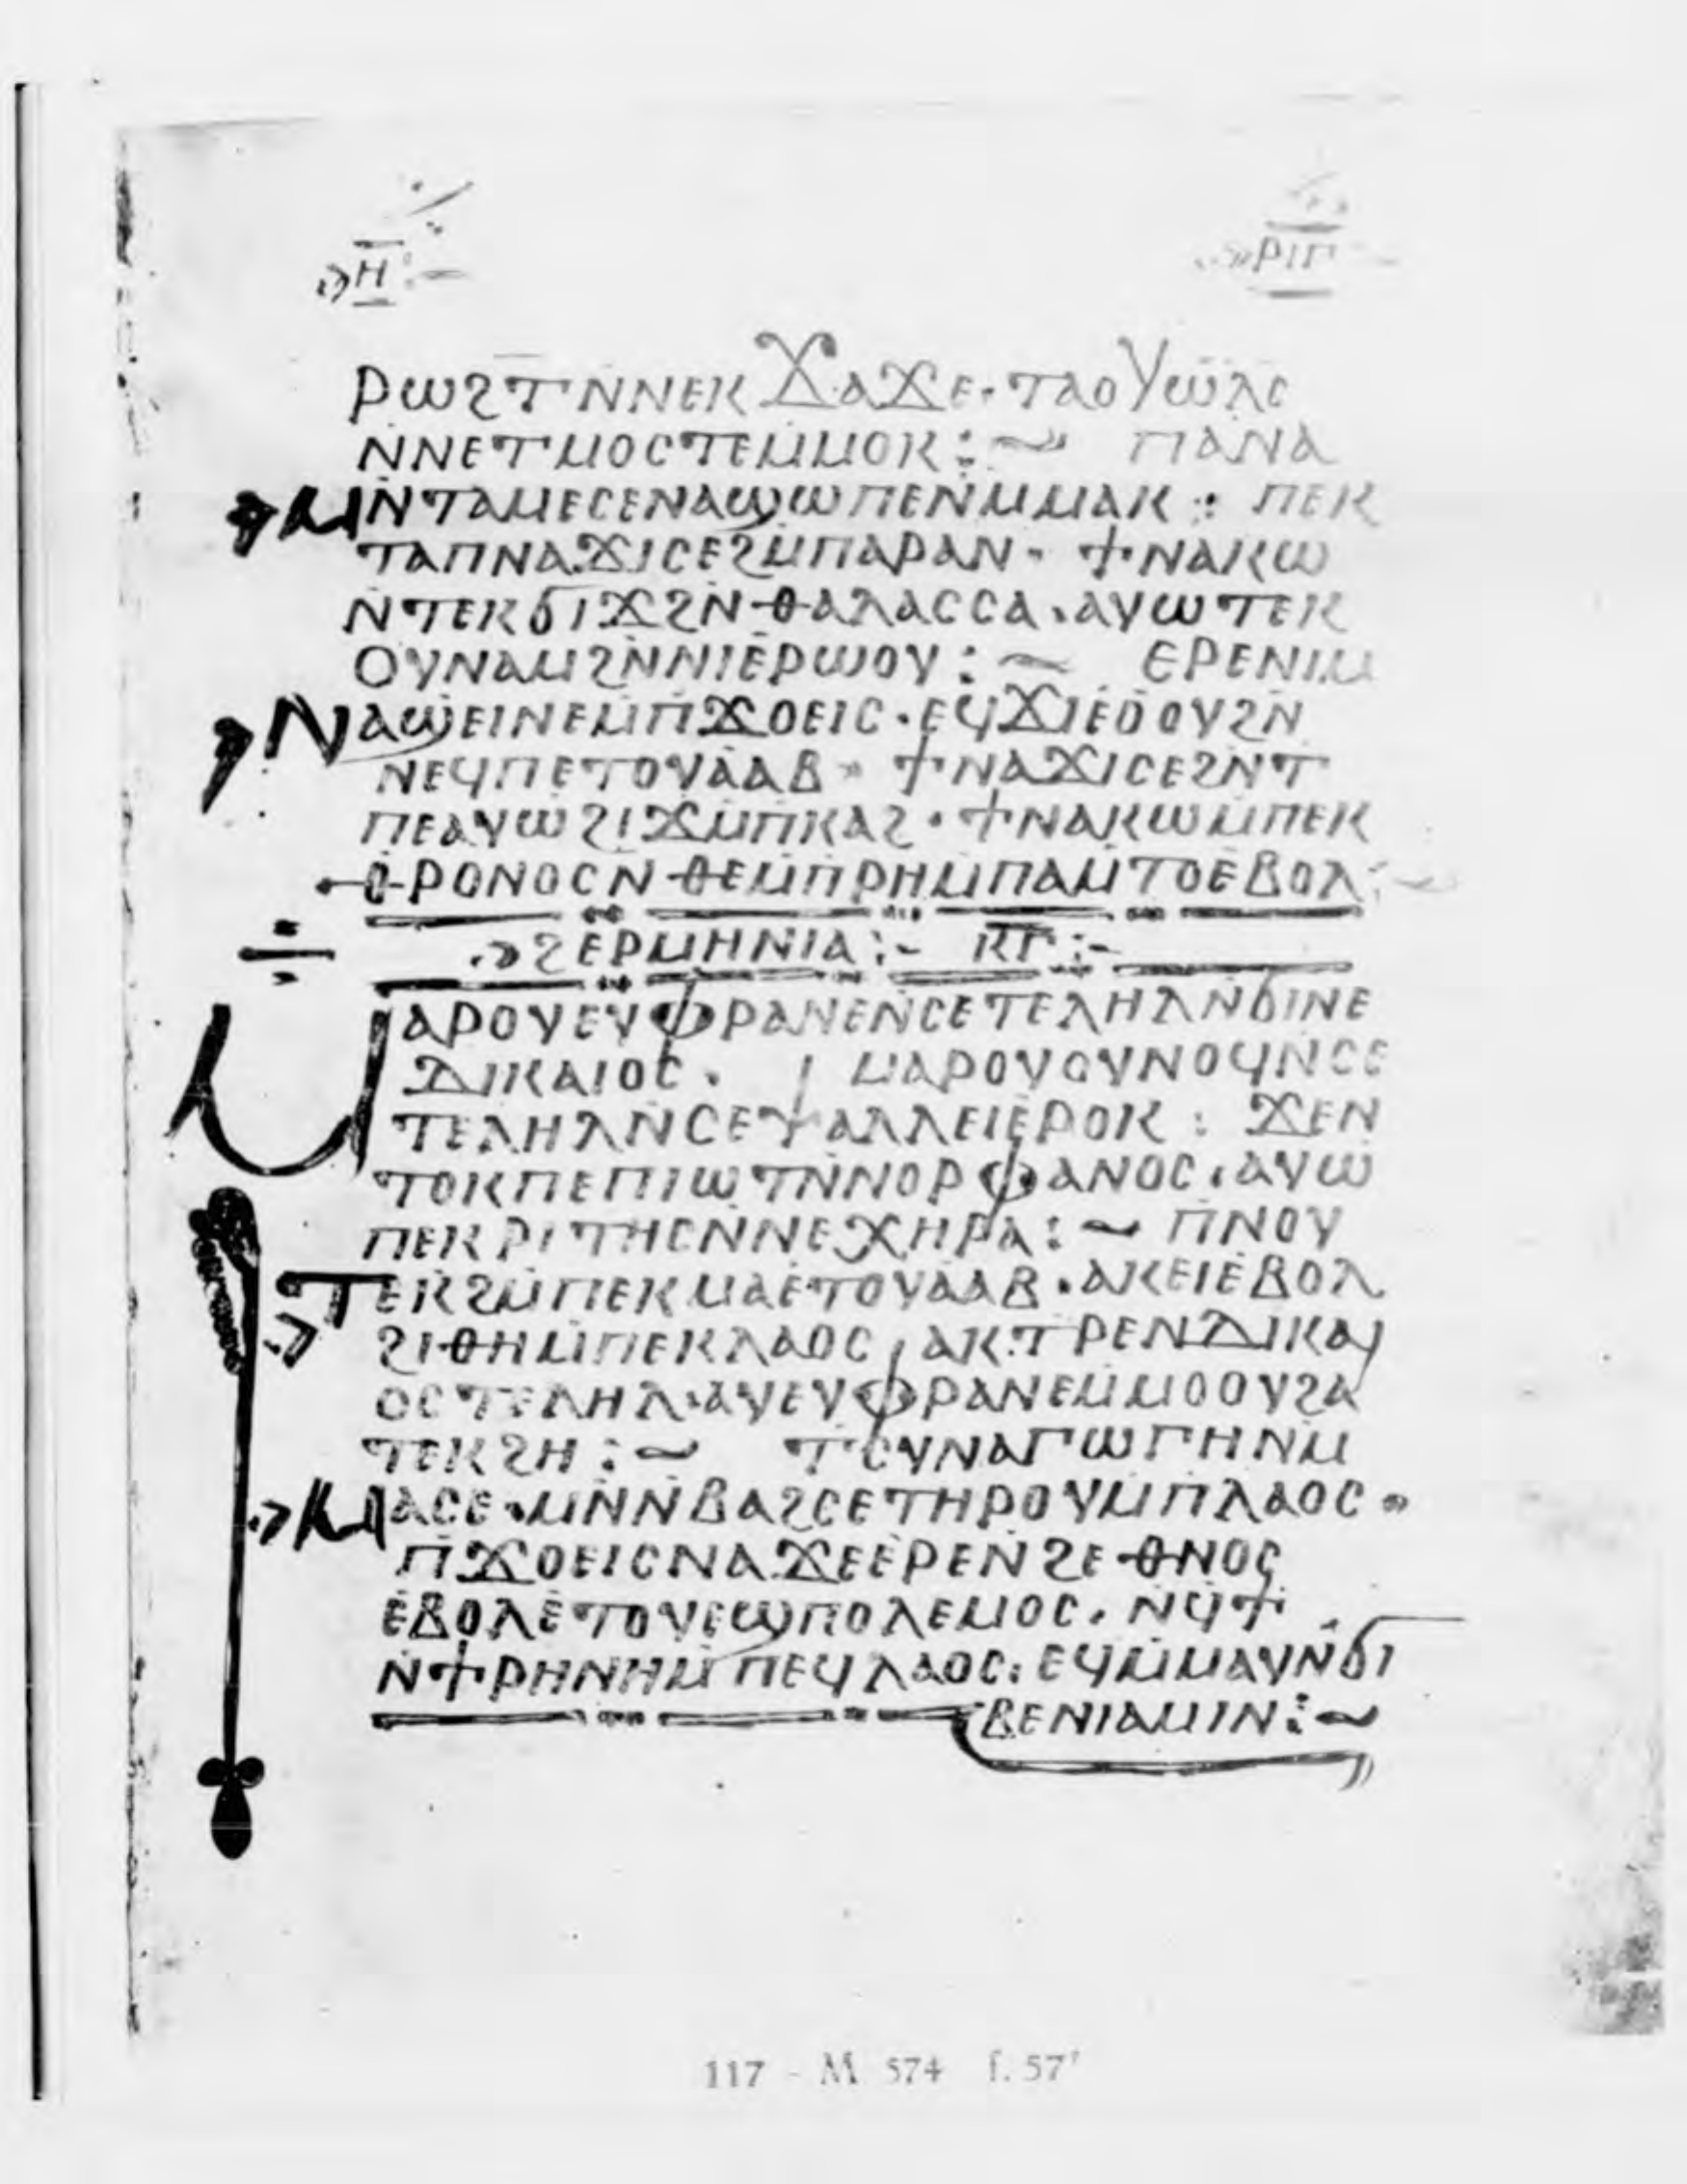 Ⲏ ⲢⲒⲄ
ⲢⲰϨⲦⲚⲚⲈⲔϪⲀϪⲈ·ⲦⲀⲟⲨⲰⲗⲤ
ⲚⲚⲈⲦⲘⲞⲤⲦⲈⲘⲘⲞⲔ:~ ⲠⲀⲚⲀ
ⲘⲚⲦⲀⲘⲈⲤⲈⲚⲀϢⲰⲠⲈⲚⲘⲘⲀⲔ: ⲠⲈⲔ
ⲦⲀⲠⲚⲀϪⲒⲤⲈϨⲘⲠⲀⲢⲀⲚ· ϮⲚⲀⲔⲰ
ⲚⲦⲈⲔϬⲒϪϨⲚⲐⲀⲖⲀⲤⲤⲀ·ⲀⲨⲰⲦⲈⲔ
ⲞⲨⲚⲀⲘϨⲚⲚⲒⲈⲢⲰⲞⲨ:~ ⲈⲢⲈⲚⲒⲘ
ⲚⲀϢⲈⲒⲚⲈⲘⲠϪⲞⲈⲒⲤ·ⲈϤϪⲒⲈⲞⲞⲨϨⲚ
ⲚⲈϤⲠⲈⲦⲞⲨⲀⲀⲂ· ϮⲚⲀϪⲒⲤⲈϨⲚⲦ
ⲠⲈⲀⲨⲰϨⲒϪⲘⲠⲔⲀϨ·ϮⲚⲀⲔⲰⲘⲠⲈⲔ
ⲐⲢⲞⲚⲞⲤⲚⲐⲈⲘⲠⲢⲎⲘⲠⲀⲘⲦⲞⲈⲂⲞⲖ:~
ϨⲈⲢⲘⲎⲚⲒⲀ:- ⲔⲄ:-
ⲘⲀⲢⲞⲨⲈⲨⲪⲢⲀⲚⲈⲚⲤⲈⲦⲈⲖⲎⲖⲚϬⲒⲚⲈ
ⲆⲒⲔⲀⲒⲞⲤ· ⲘⲀⲢⲞⲨⲞⲨⲚⲞϤⲚⲤⲈ
ⲦⲈⲖⲎⲖⲚⲤⲈⲮⲀⲖⲖⲈⲒⲈⲢⲞⲔ: ϪⲈⲚ
ⲦⲞⲔⲠⲈⲠⲒⲰⲦⲚⲚⲞⲢⲪⲀⲚⲞⲤ·ⲀⲨⲰ
ⲠⲈⲔⲢⲒⲦⲎⲤⲚⲚⲈⲬⲎⲢⲀ:~ ⲠⲚⲞⲨ
ⲦⲈⲔϨⲘⲠⲈⲔⲘⲀⲈⲦⲞⲨⲀⲀⲂ·ⲀⲔⲈⲒⲈⲂⲞⲖ
ϨⲒⲐⲎⲘⲠⲈⲔⲖⲀⲞⲤ,ⲀⲔⲦⲢⲈⲚⲆⲒⲔⲀⲒ
ⲞⲤⲦⲈⲖⲎⲖ·ⲀⲨⲈⲨⲪⲢⲀⲚⲈⲘⲘⲞⲞⲨϨⲀ
ⲦⲈⲔϨⲎ:~ ⲦⲤⲨⲚⲀⲄⲰⲄⲎⲚⲘ
ⲘⲀⲤⲈ·ⲘⲚⲚⲂⲀϨⲤⲈⲦⲎⲢⲞⲨⲘⲠⲖⲀⲞⲤ·
ⲠϪⲞⲈⲒⲤⲚⲀϪⲈⲈⲢⲈⲚϨⲈⲐⲚⲞⲤ
ⲈⲂⲞⲖⲈⲦⲞⲨⲈϢⲠⲞⲖⲈⲘⲞⲤ· ⲚϤϮ
ⲚϮⲢⲎⲚⲎⲘⲠⲈϤⲖⲀⲞⲤ:ⲈϤⲘⲘⲀⲨⲚϬⲒ
ⲂⲈⲚⲒⲀⲘⲒⲚ:~
117 - M 574 f. 57ʳ